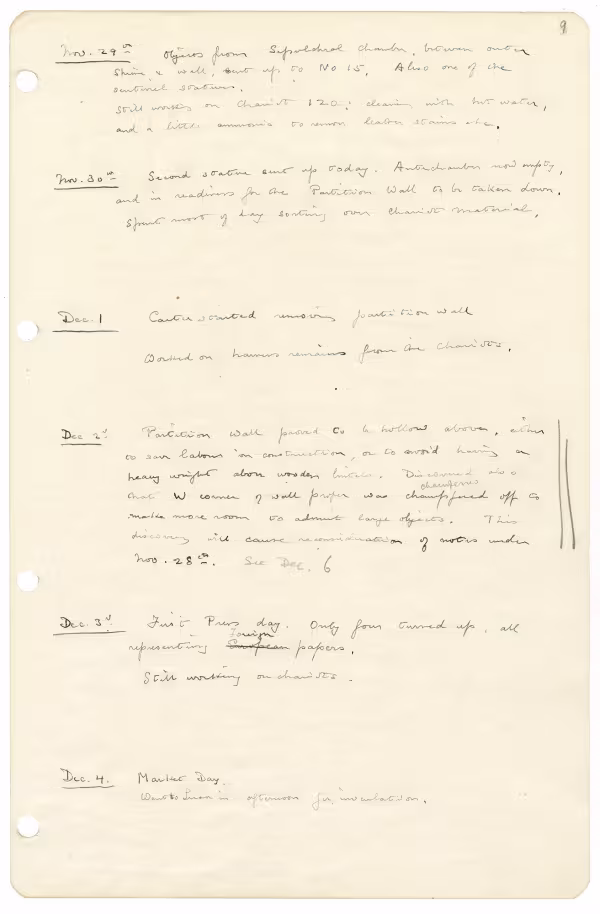 9
Nov. 29th Objects from Sepulchral Chamber, between outer
shrine & wall, sent up to No 15. Also one of the
sentinel statues.
Still working on Chariot 120: cleaning with hot water,
and a little ammonia to remove leather stains etc.
Nov. 30th Second statue sent up today. Antechamber now empty,
and in readiness for the Partition Wall to be taken down.
Spent most of day sorting over chariot material.
Dec. 1 Carter started removing partition wall
Worked on harness remains from the chariots.
Dec 2d Partition Wall proved to be hollow above, either
to save labour in construction, or to avoid having an
heavy weight above wooden lintel. Discovered also
chamfered
that W corner of wall proper was champfered off to
make more room to admit large objects. This
discovery will cause reconsideration of notes under
Nov. 28th. See Dec. 6
Dec. 3d First Press day. Only four turned up, all
Foreign
representing European papers.
Still working on chariots.
Dec. 4. Market Day.
Went to Luxor in afternoon for